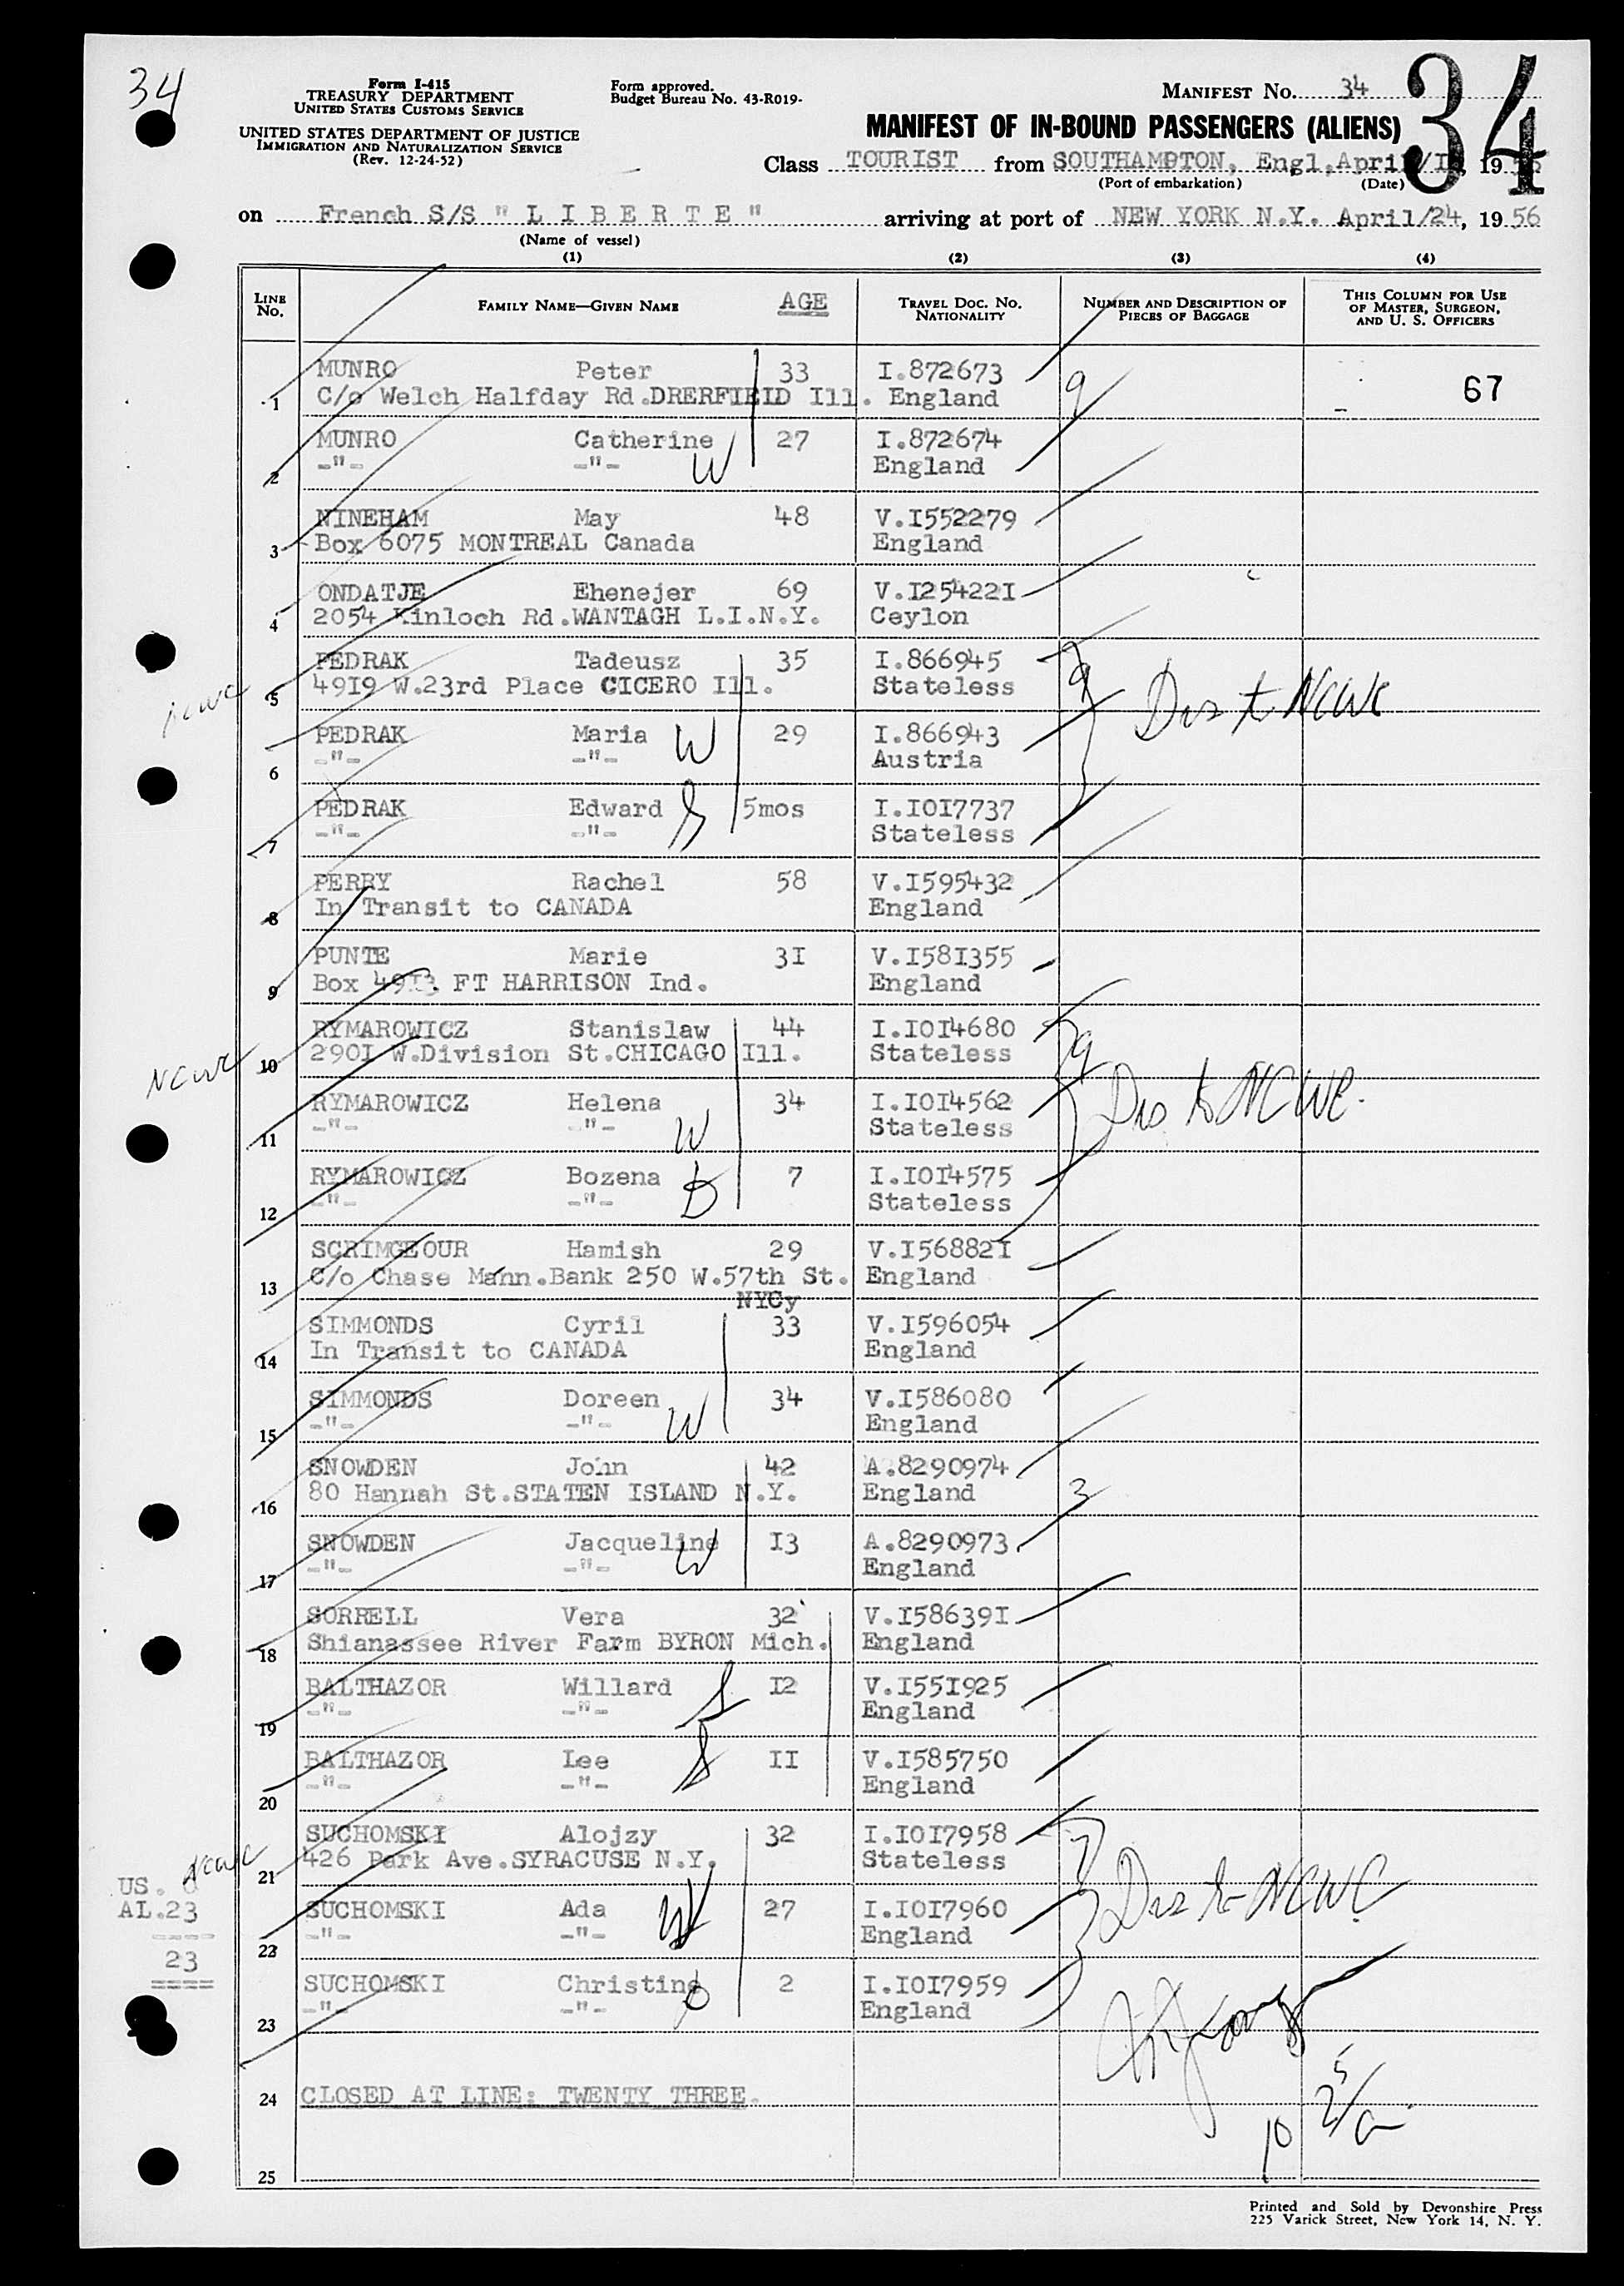 34
Form I-415
TREASURY DEPARTMENT
UNITED STATES CUSTOMS SERVICE
UNITED STATES DEPARTMENT OF JUSTICE
IMMIGRATION AND NATURALIZATION SERVICE
(Rev. 12-24-52)
Form approved.
Budget Bureau No. 43-R019-
MANIFEST No. 34
34
MANIFEST OF IN-BOUND PASSENGERS (ALIENS)
Class TOURIST from SOUTHAMPTON, Engl, April 19
(Port of embarkation) (Date)
on French S/S " L I B E R T E " arriving at port of NEW YORK N.Y. April/24, 1956
(Name of vessel)
(1) (2) (3) (4)
LINE No. FAMILY NAME—GIVEN NAME AGE TRAVEL DOC. NO. NATIONALITY NUMBER AND DESCRIPTION OF PIECES OF BAGGAGE THIS COLUMN FOR USE OF MASTER, SURGEON, AND U. S. OFFICERS
MUNRO Peter 33 I.872673
1 C/o Welch Halfday Rd.DRERFIEID Ill. England 9 67
MUNRO Catherine W 27 I.872674
2 -"- -"- England
NINEHAM May 48 V.I552279
3 Box 6075 MONTREAL Canada England
ONDATJE Ehenejer 69 V.I254221
4 2054 Kinloch Rd.WANTAGH L.I.N.Y. Ceylon
PEDRAK Tadeusz 35 I.866945
NCWC 5 4919 W.23rd Place CICERO Ill. Stateless 9 Dis to NCWC
PEDRAK Maria W 29 I.866943
6 -"- -"- Austria
PEDRAK Edward S 5mos I.IOI7737
7 -"- -"- Stateless
PERRY Rachel 58 V.I595432
8 In Transit to CANADA England
PUNTE Marie 3I V.I58I355
9 Box 49I3 FT HARRISON Ind. England
RYMAROWICZ Stanislaw 44 I.IOI4680
NCWC 10 290I W.Division St.CHICAGO Ill. Stateless 9
RYMAROWICZ Helena 34 I.IOI4562 Dis to NCWC.
11 -"- -"- W Stateless
RYMAROWICZ Bozena D 7 I.IOI4575
12 -"- -"- Stateless
SCRIMGEOUR Hamish 29 V.I56882I
13 C/o Chase Mahn.Bank 250 W.57th St. England
NYCy
SIMMONDS Cyril 33 V.I596054
14 In Transit to CANADA England
SIMMONDS Doreen 34 V.I586080
15 -"- -"- W England
SNOWDEN John 42 A.8290974
16 80 Hannah St.STATEN ISLAND N.Y. England 3
SNOWDEN Jacqueline I3 A.8290973
17 -"- -"- W England
SORRELL Vera 32 V.I58639I
18 Shianassee River Farm BYRON Mich. England
BALTHAZOR Willard S I2 V.I55I925
19 -"- -"- England
BALTHAZOR Lee S II V.I585750
20 -"- -"- England
SUCHOMSKI Alojzy 32 I.IOI7958
NCWC 21 426 Park Ave.SYRACUSE N.Y. Stateless 7 Dis to NCWC
SUCHOMSKI Ada W 27 I.IOI7960
22 -"- -"- England
SUCHOMSKI Christine D 2 I.IOI7959
23 -"- -"- England
US. 0
AL.23
----
23
====
24 CLOSED AT LINE: TWENTY THREE.
10
25
Printed and Sold by Devonshire Press
225 Varick Street, New York 14, N. Y.